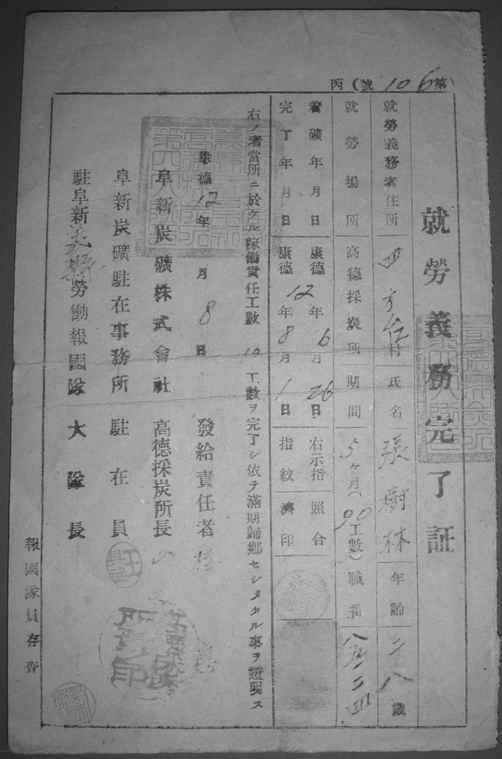 丙(第106號)
就勞義務完了証
就勞義務者住所 四方台村 氏名 張樹林 年齡 二八歲
就勞場所 高德採炭所 期間 5ヶ月(90工數) 職種
着礦年月日 康德12年6月26日 右示指 照合
完了年月日 康德12年8月1日 指紋 濟印
右ノ者當所ニ於ケル稼働責任工數90工數ヲ完了シ依テ滿期歸鄉セシメタル事ヲ證明ス
康德12年 月8日
發給責任者
阜新炭礦株式會社 高德採炭所長
阜新炭礦駐在事務所 駐在員
駐阜新 勞働報國隊大隊長
報國隊員存査